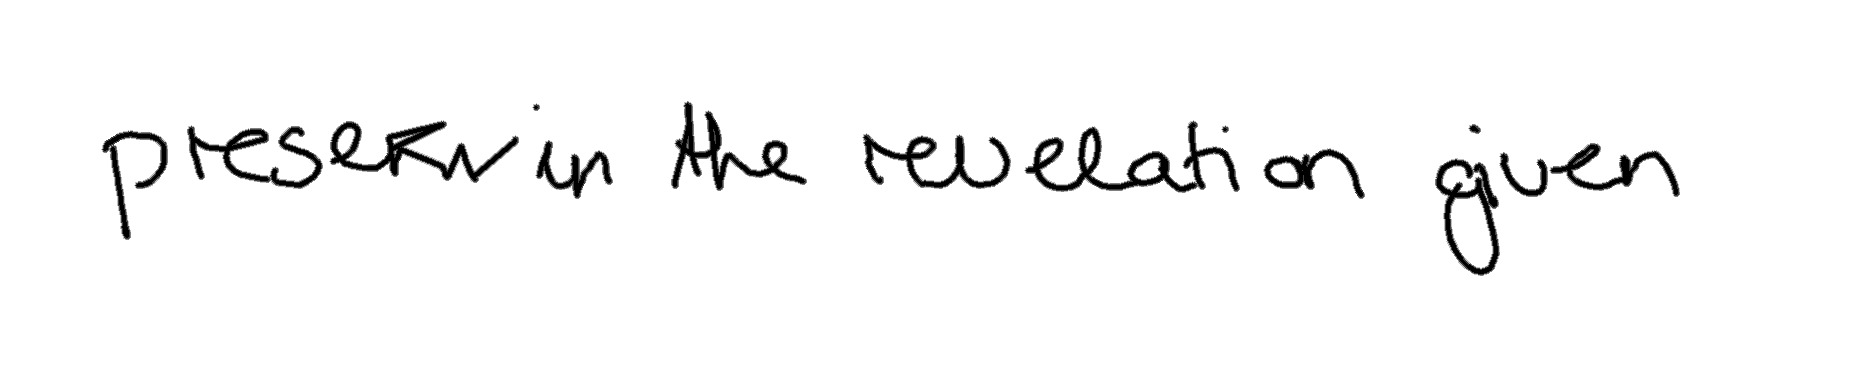 preservin the revelation given